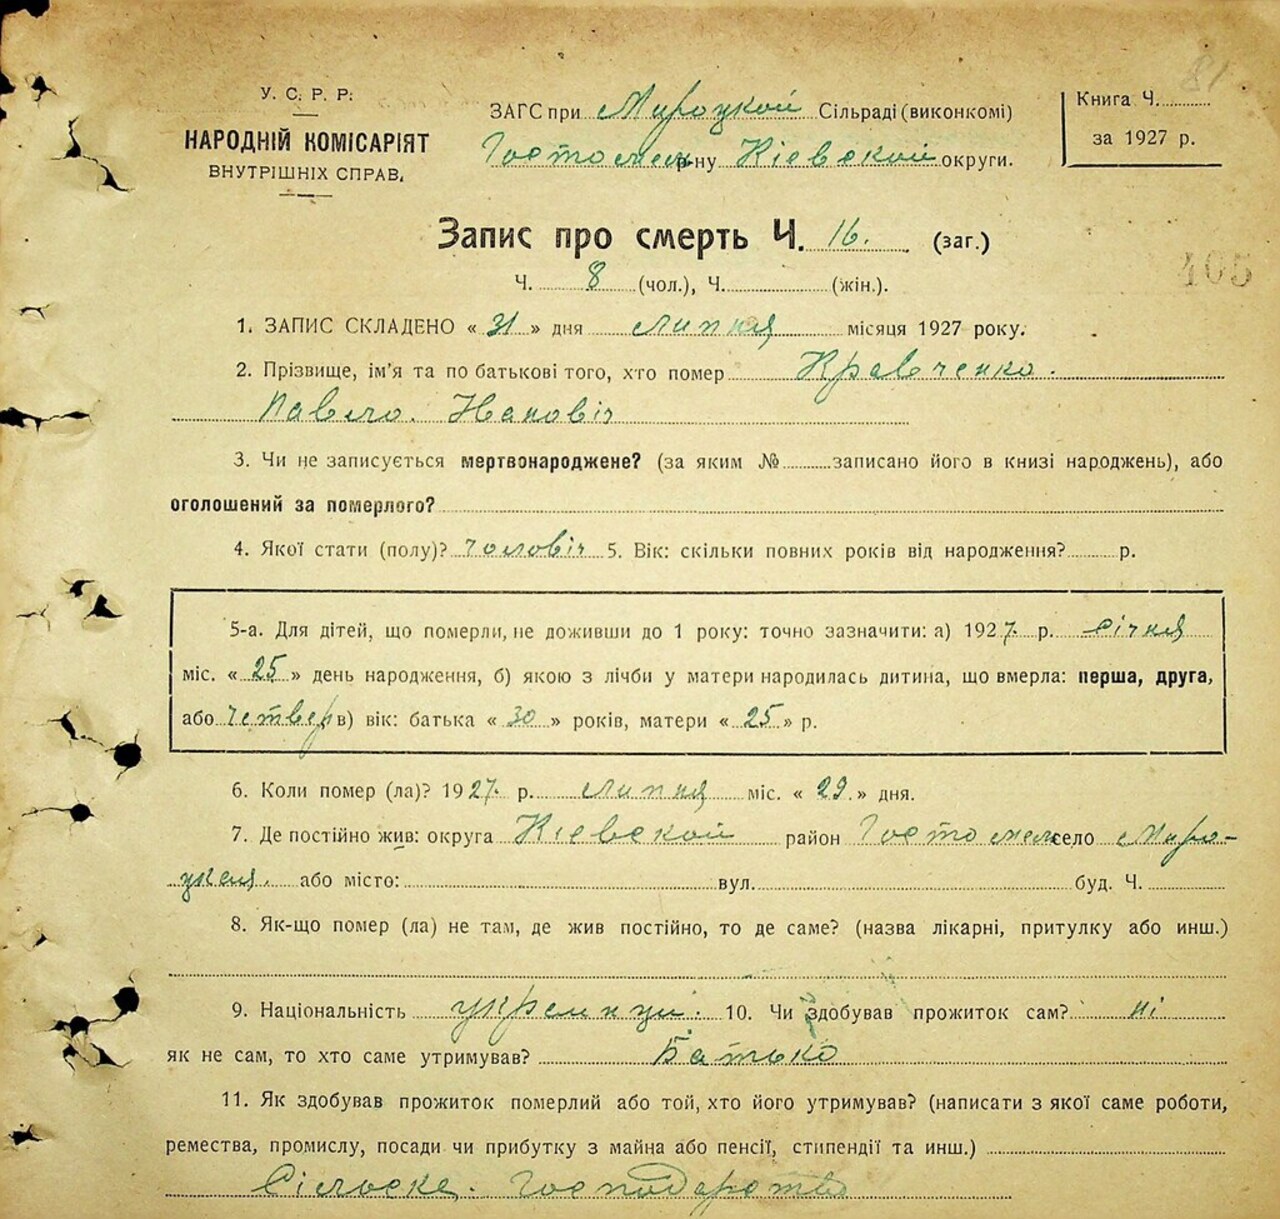 81
У. С. Р. Р.
НАРОДНІЙ КОМІСАРІЯТ
ВНУТРІШНІХ СПРАВ.
ЗАГС при Мироцкой Сільраді (виконкомі)
Гостомел р-ну Кіевской округи.
Книга Ч.
за 1927 р.
Запис про смерть Ч. 16. (заг.)
405
Ч. 8 (чол.), Ч. (жін.).
1. ЗАПИС СКЛАДЕНО « 31 » дня липня місяця 1927 року.
2. Прізвище, ім'я та по батькові того, хто помер Кравченко.
Павло. Іванович
3. Чи не записується мертвонароджене? (за яким № записано його в книзі народжень), або
оголошений за померлого?
4. Якої стати (полу)? чоловіч 5. Вік: скільки повних років від народження? р.
5-а. Для дітей, що померли, не доживши до 1 року: точно зазначити: а) 1927. р. Січня
міс. « 25 » день народження, б) якою з лічби у матери народилась дитина, що вмерла: перша, друга,
або четвер в) вік: батька « 30 » років, матери « 25 » р.
6. Коли помер (ла)? 1927. р. липня міс. « 29. » дня.
7. Де постійно жив: округа Кіевской район Гостомел село Миро-
цкая. або місто: вул. буд. Ч.
8. Як-що помер (ла) не там, де жив постійно, то де саме? (назва лікарні, притулку або инш.)
9. Національність украинци. 10. Чи здобував прожиток сам? ні
як не сам, то хто саме утримував? Батько
11. Як здобував прожиток померлий або той, хто його утримував? (написати з якої саме роботи,
ремества, промислу, посади чи прибутку з майна або пенсії, стипендії та инш.)
Сільске. Господарство